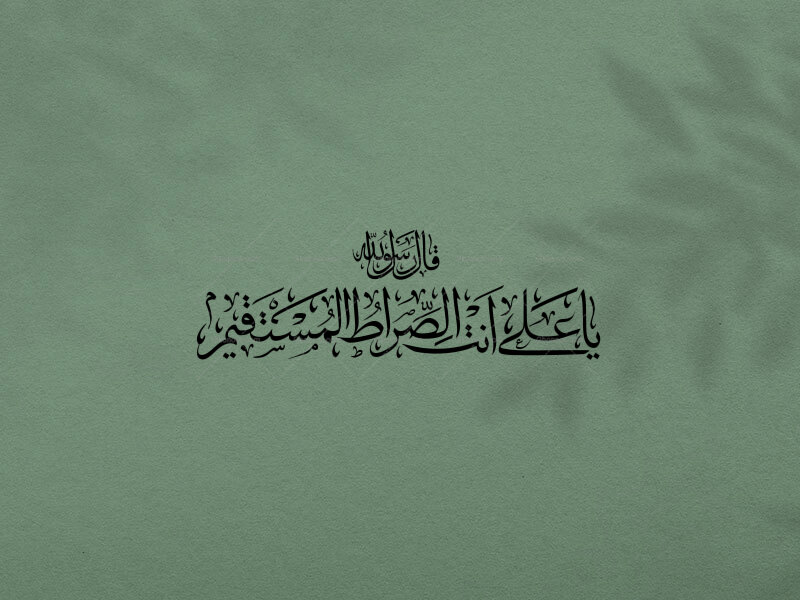 قال رسول الله
يا علي أنت الصِّراطُ المُسْتَقيم